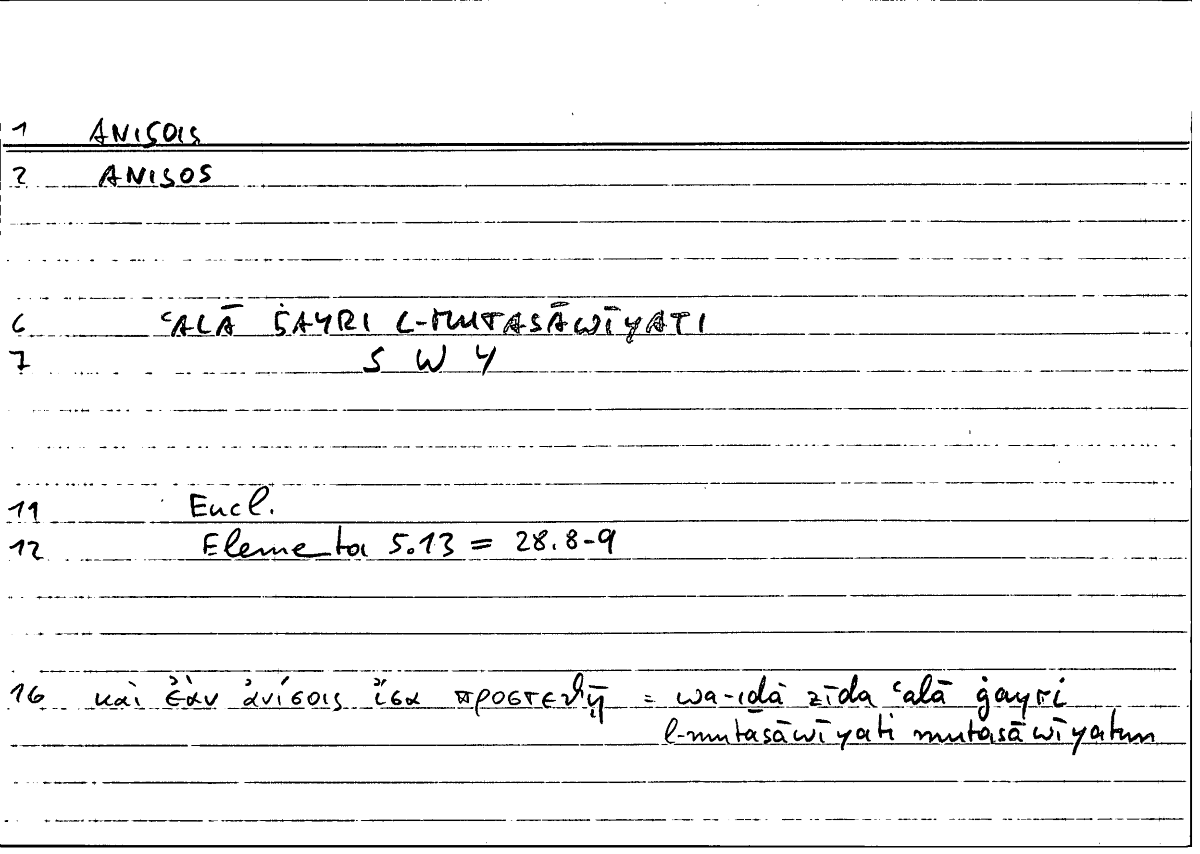 1 ANISOIS
2 ANISOS
6 ʿALĀ ĠAYRI L-MUTASĀWĪYATI
7 S W Y
11 Eucl.
12 Elementa 5.13 = 28.8-9
16 καὶ ἐὰν ἀνίσοις ἴσα προστεθῇ = wa-iḏā zīda ʿalā ġayri
l-mutasāwīyati mutasāwīyatun